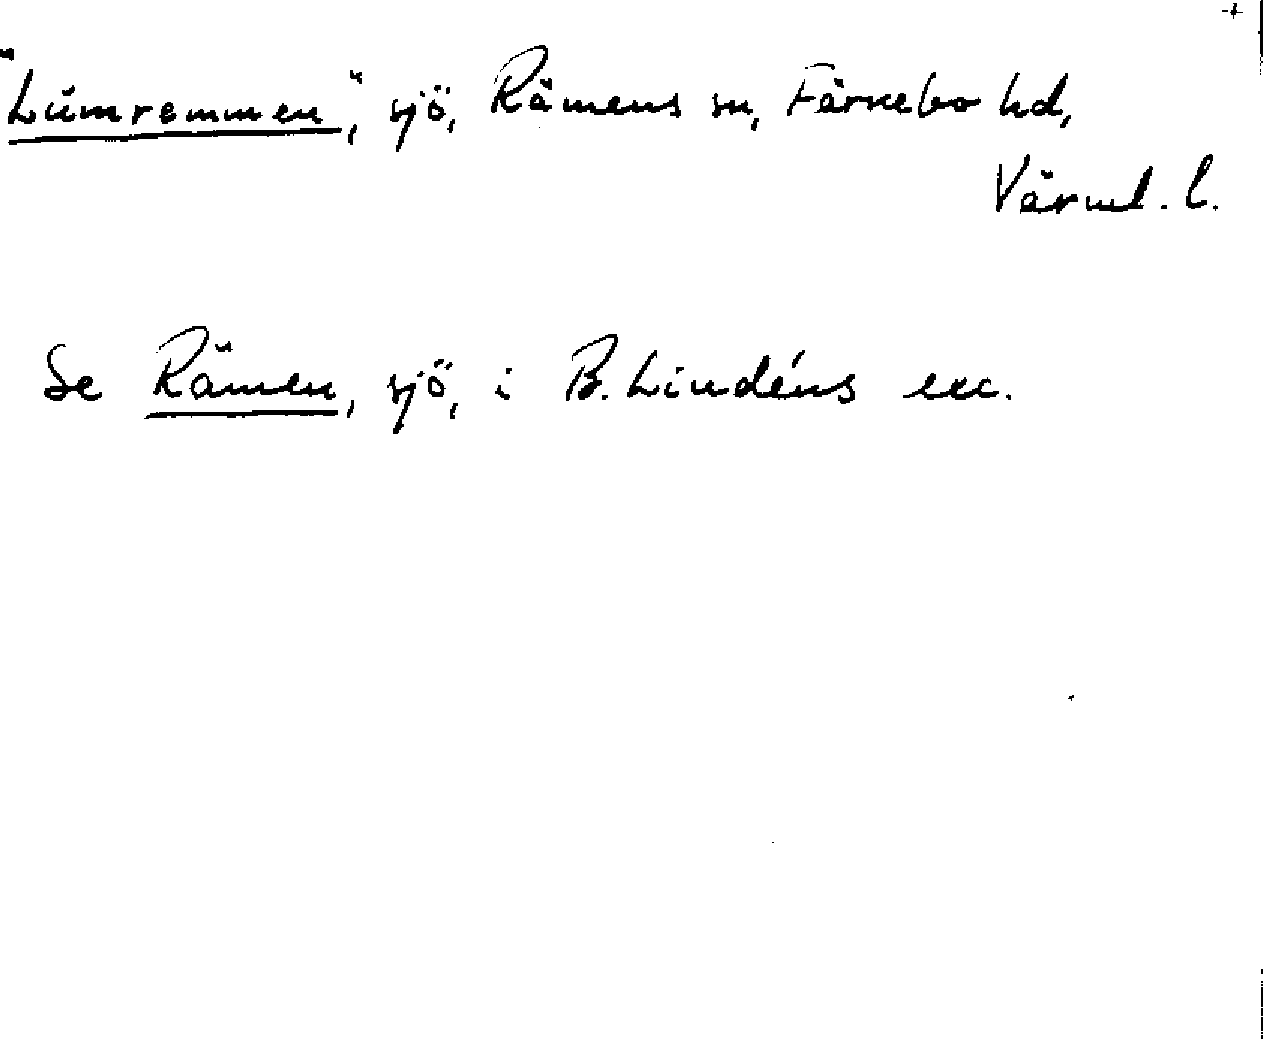 "Lümremmen", sjö, Rämens sn, Färnebo hd,
Värml. l.
Se Rämen, sjö, i B. Lindéns exc.